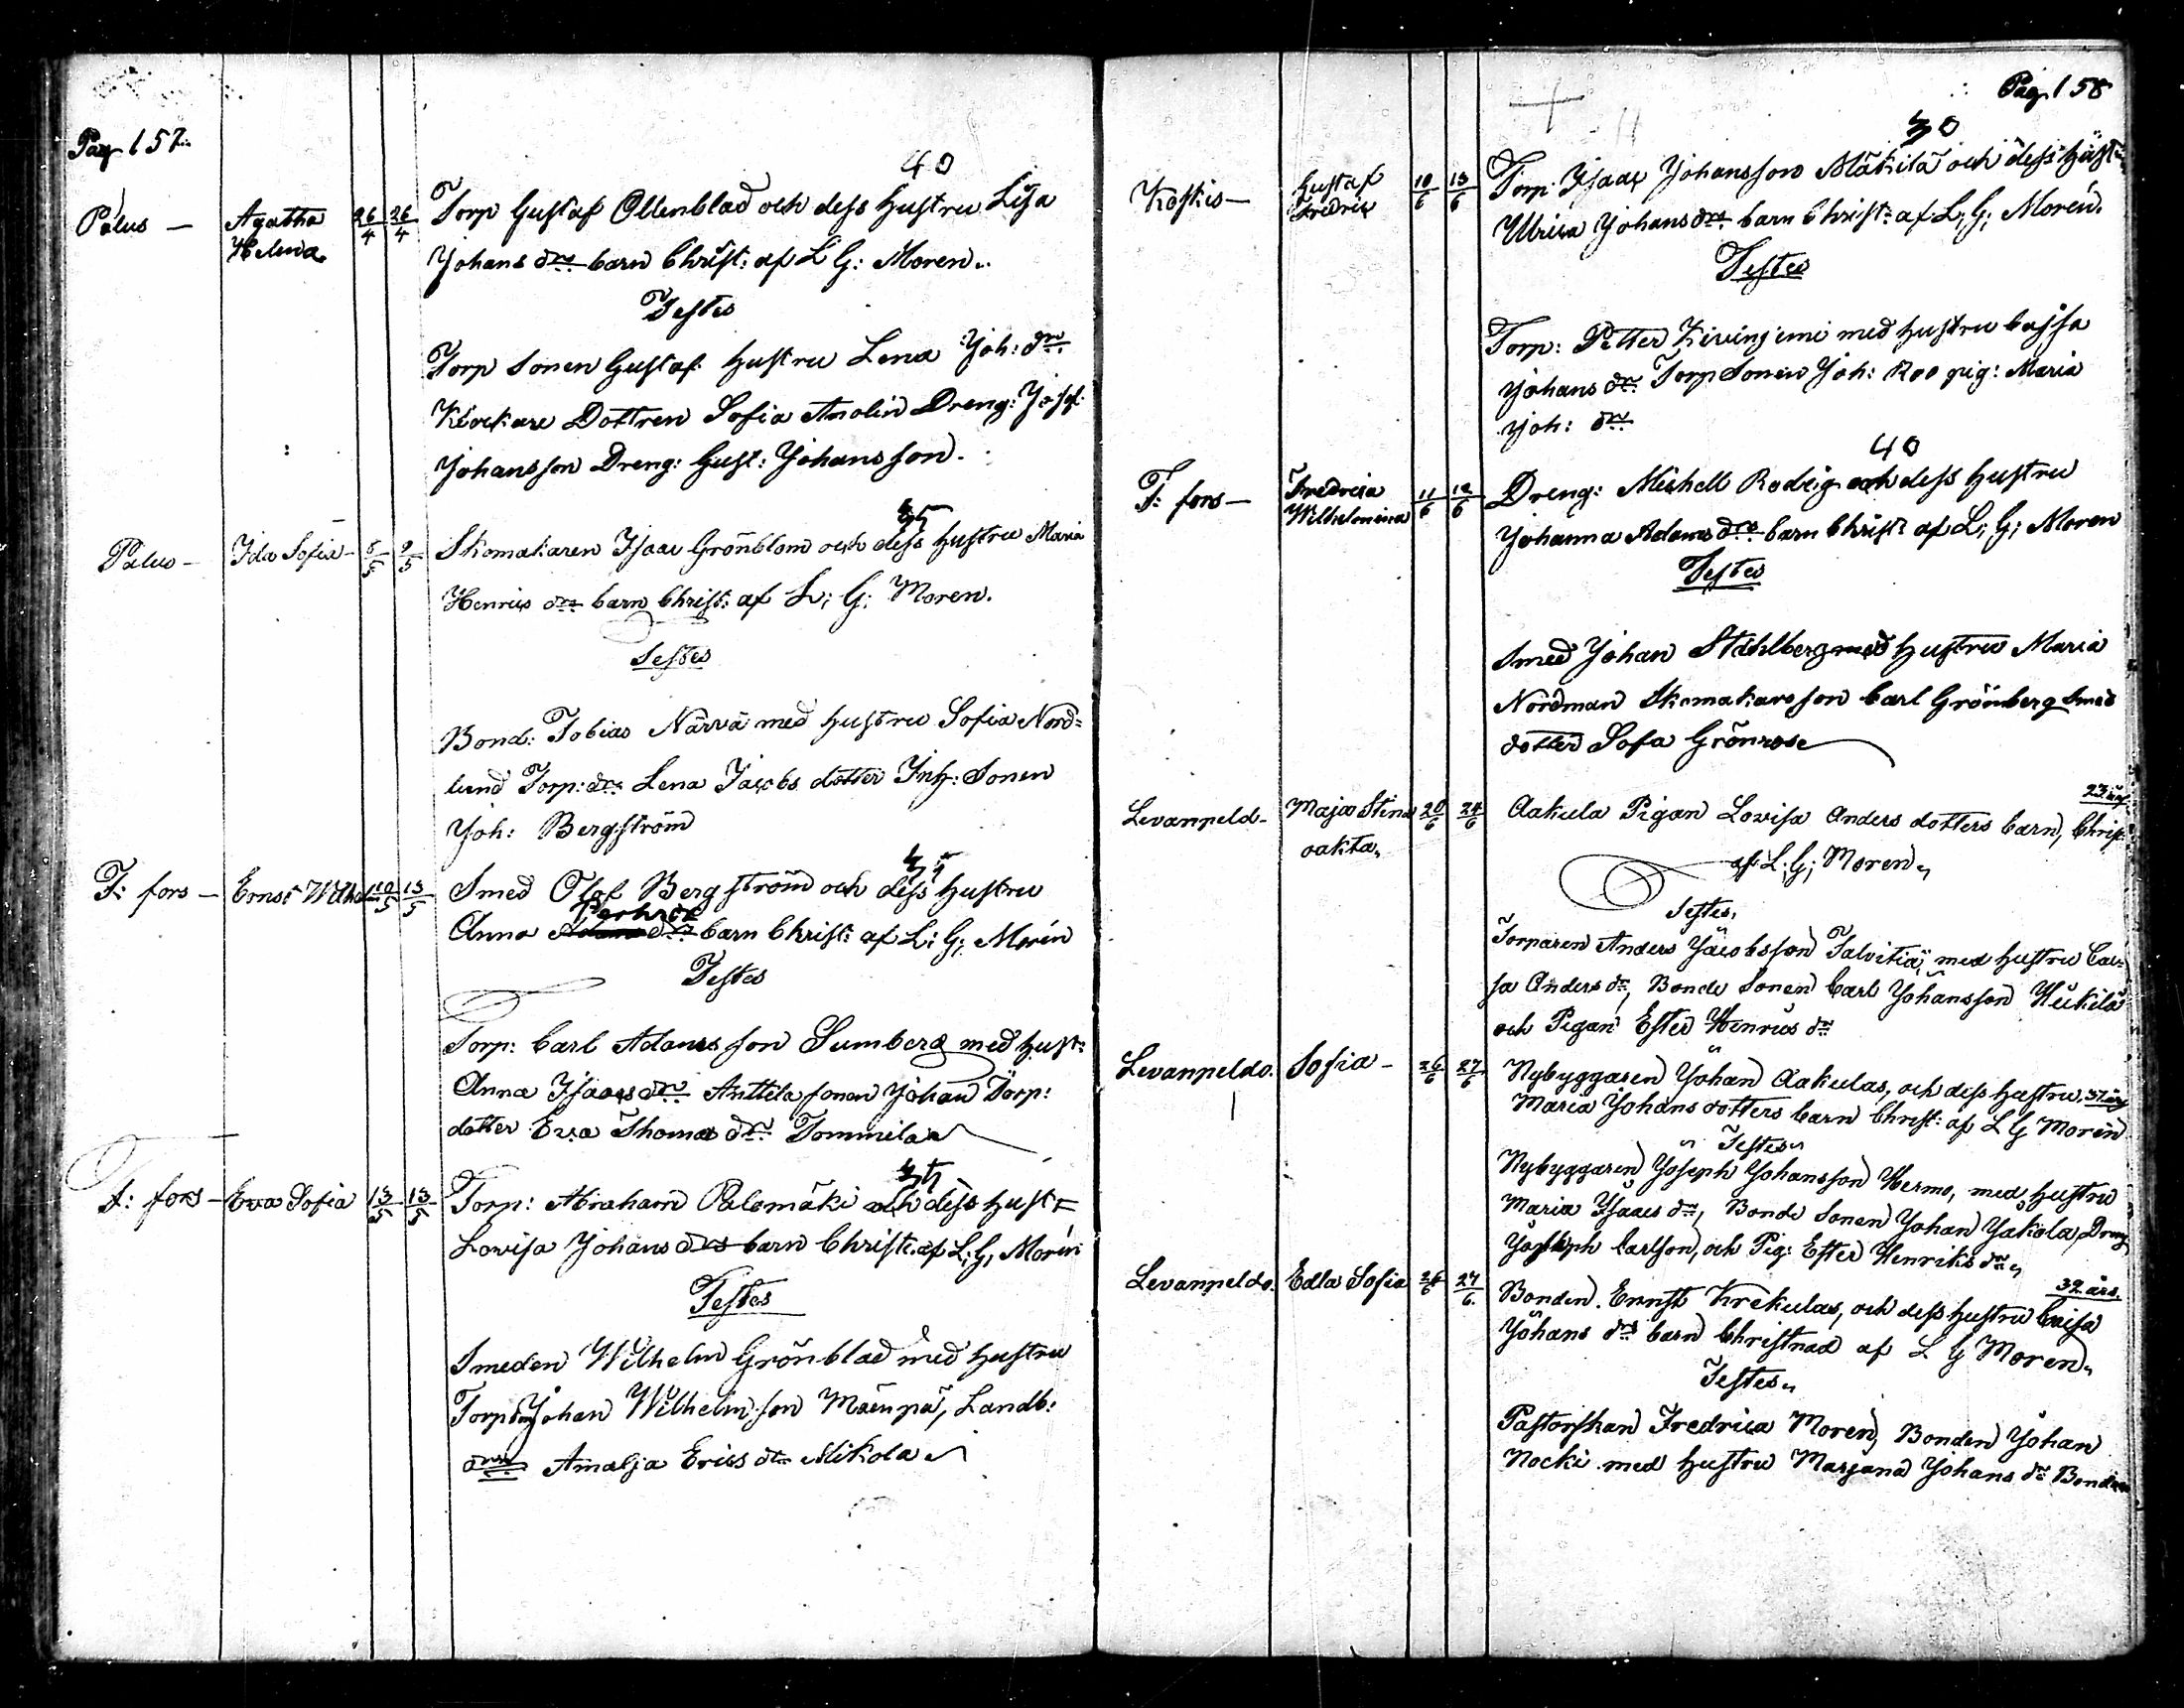 Pag 157
40
Pålus — Agatha 26/4 26/4 Torp Gustaf Ollenblad och dess hustru Lisa
Helena Johans drs barn Christ: af L G: Moren
Testes
Torp sonen Gustaf hustru Lena Joh: dr
Klockare Dottren Sofia Anolin Dreng: Josef
Johansson Dreng: Gust: Johansson.
35
Pålus — Ida Sofia 5/5 9/5 Skomakaren Isaac Grönblom och dess hustru Maria
Henrics drs barn Christ: af L: G: Moren.
Testes
Bond: Tobias Närvä med hustru Sofia Nord=
lund Torp: dr Lena Jacobs dotter Inh: Sonen
Joh: Bergström
35
F: fors — Ernst Wilhelm 10/5 13/5 Smed Olof Bergström och dess hustru
Anna drs barn Christ: af L: G: Morén
Testes
Torp: Carl Adamsson Sumberg med hust:
Anna Isaacs dr Anttila sonen Johan Torp:
dotter Eva Thomas dr Tommila
35
F: fors — Eva Sofia 13/5 13/5 Torp: Abraham Palomäki och dess hust=
Lovisa Johans drs barn Christ: af L: G; Morén
Testes
Smeden Wilhelm Grönblad med hustru
Torp son Johan Wilhelmsson Mäenpä, Landb:
Amalja Erics dr Mikola
Pag. 158
30
Koskis — Gustaf 10/6 13/6 Torp: Isaac Johansson Mäkilä och dess hust
Fredric Ulrica Johans drs barn Christ: af L; G; Morén.
Testes
Torp: Petter Kiviniemi med hustru Cajsa
Johans dr Torp Sonen Joh: Roo pig: Maria
Joh: dr
40
F: fors — Fredrica 11/6 12/6 Dreng: Michell Rodig och dess hustru
Wilhelmina Johanna Adams drs barn Christ: af L; G; Moren
Testes
Smed Johan Ståhlberg med hustru Maria
Nordman Skomakarsson Carl Grönberg Smed
dotter Sofa Grönroos
23 års
Levanpeld — Maja Stina 20/6 24/6 Aakula Pigan Lovisa Anders dotters barn, Chris:
oäkta af L. G; Moren
Testes
Torparen Anders Jacobsson Talvitiä, med hustru Cai=
sa Anders dr, Bonde Sonen Carl Johansson Heikilä
och Pigan Ester Henrics dr
Levanpeldo. Sofia — 26/6 27/6 Nybyggaren Johan Aakulas, och dess hustru 37 års
Maria Johans dotters barn Christ: af L G Morén
Testes
Nybyggaren Joseph Johansson Hermo, med hustru
Maria Isaacs dr, Bonde Sonen Johan Jakola, Dreng
Joseph Carlson, och Pig: Ester Henriks dr
32 års.
Levanpeldo. Edla Sofia 26/6 27/6. Bonden Ernst Krekulas, och dess hustru Caisa
Johans drs barn Christnad af L G Moren
Testes
Pastorskan Fredrica Moren, Bonden Johan
Nocki med hustru Marjana Johans dr Bonden